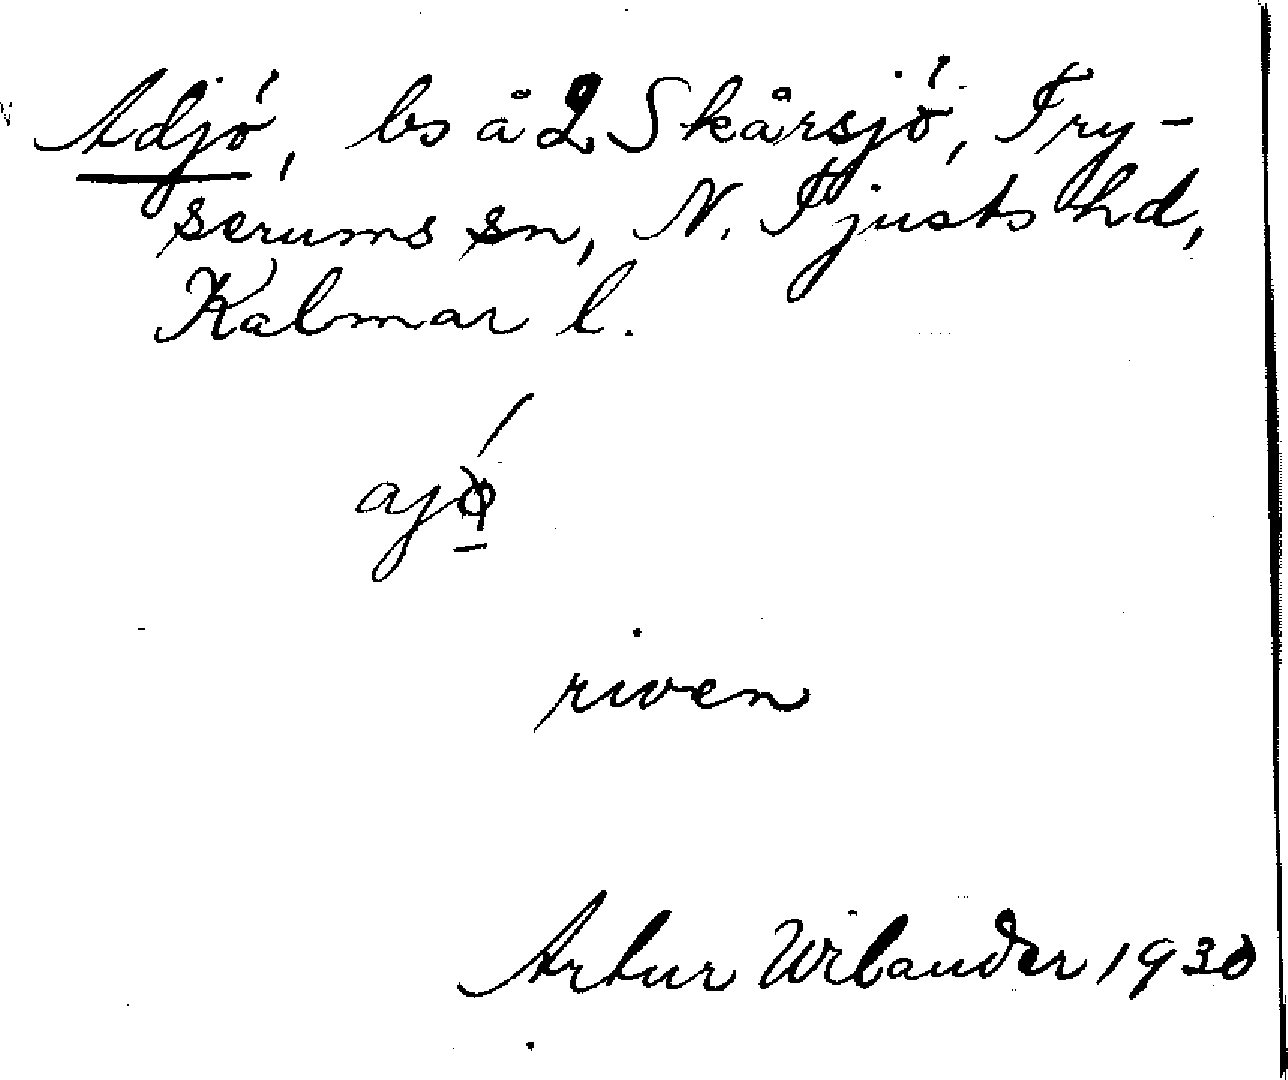 Adjö, bs å 2 Skårsjö, Try-
serums sn, N. Tjusts hd,
Kalmar l.
riven
Artur Wilander 1930